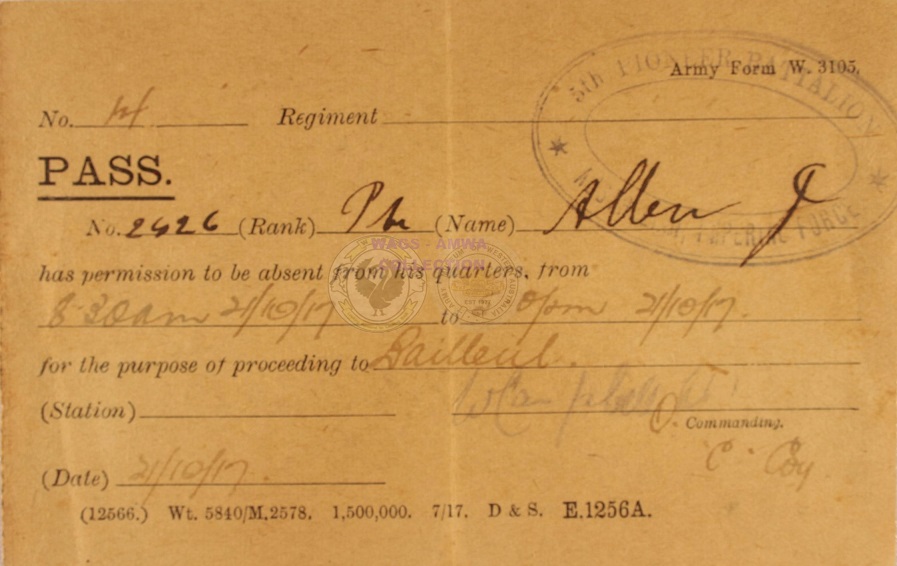 5th PIONEER BATTALION
Army Form W. 3105.
IMPERIAL FORCE
No. 14 Regiment
PASS.
No. 2426 (Rank) Pte (Name) Allen J
WAGS - AMWA
COLLECTION
has permission to be absent from his quarters, from
8.30am 21/10/17 to pm 21/10/17.
for the purpose of proceeding to Bailleul.
(Station)
Commanding.
C. Coy
(Date) 21/10/17.
(12566.) Wt. 5840/M.2578. 1,500,000. 7/17. D & S. E.1256A.